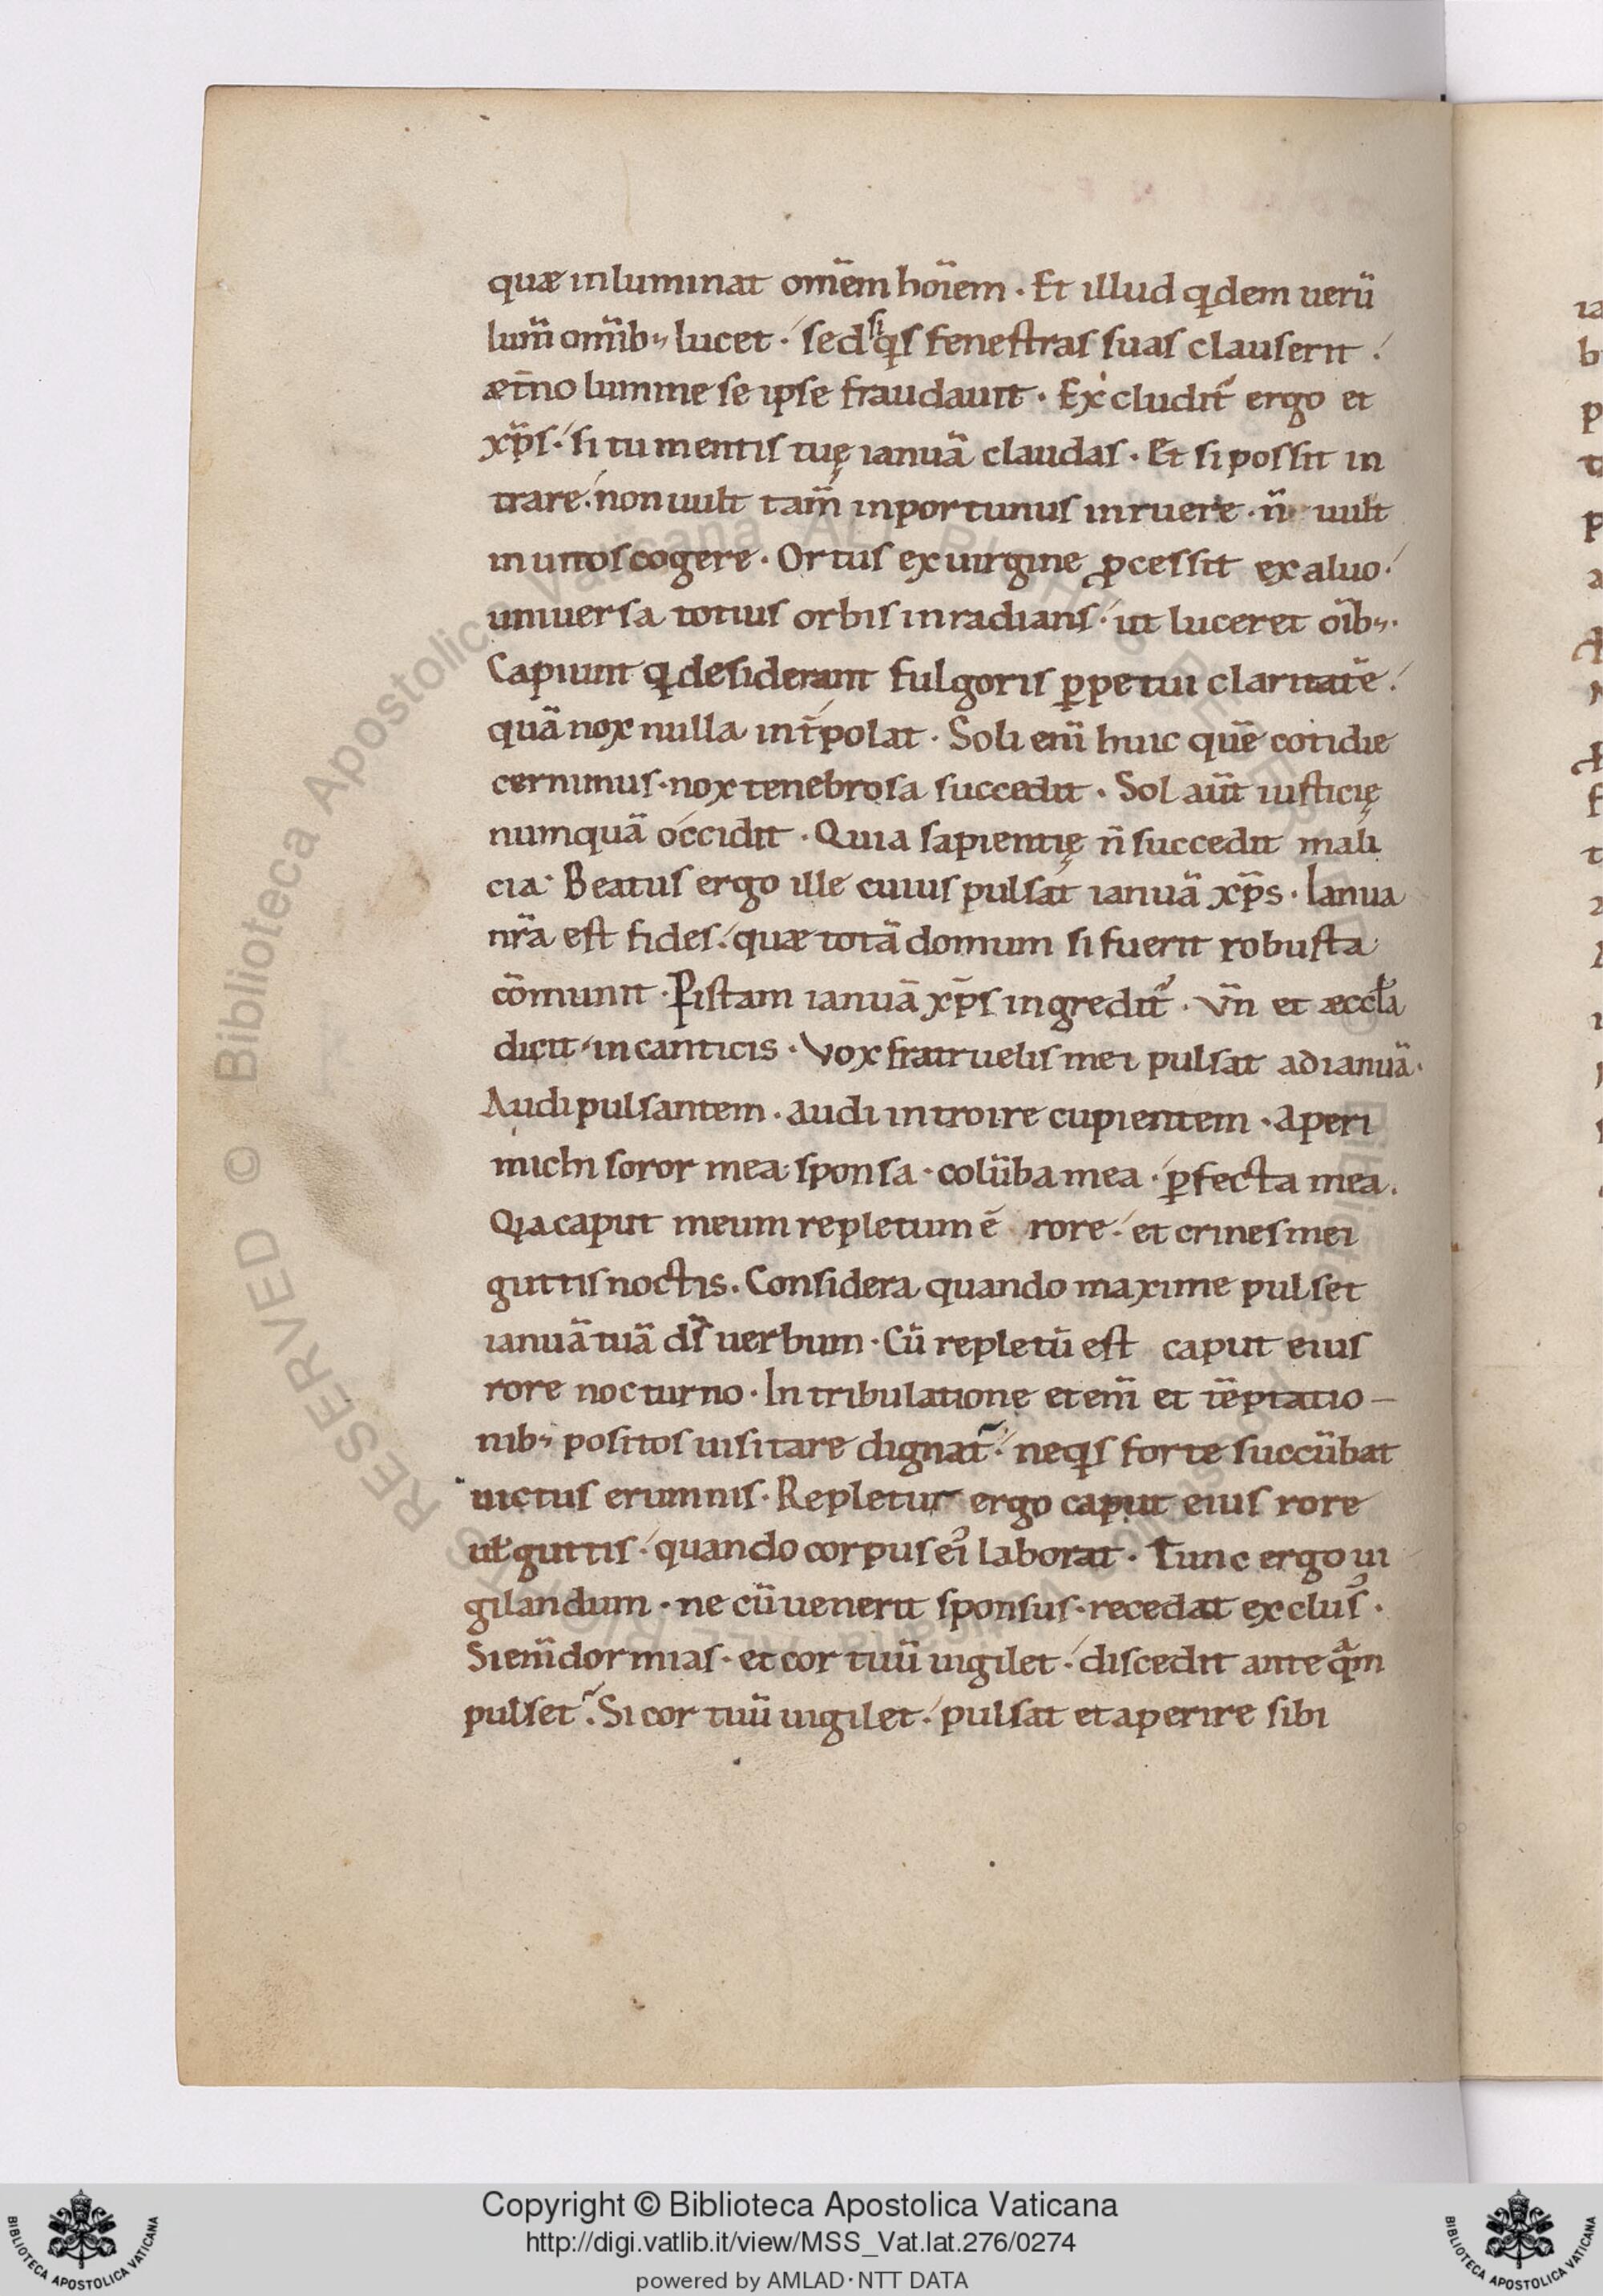 quæ inluminat om̄em hoīem · Et illud qdem uerū
lum̄ om̄ib; lucet · sed si qs fenestras suas clauserit ·
æt̄no lumine se ipse fraudauit · Excludit᷑ ergo et
xp̄s · si tu mentis tuę ianuā claudas · Et si possit in
trare · non uult tam̄ inportunus inruere · n̄ uult
inuitos cogere · Ortus ex uirgine ꝓcessit ex aluo ·
uniuersa totius orbis inradians · ut luceret oīb; ·
Capiunt q desiderant fulgoris ꝑpetui claritatē ·
quā nox nulla int̄polat · Soli enī huic quē cotidie
cernimus · nox tenebrosa succedit · Sol aūt iusticię
numquā occidit · Quia sapientię n̄ succedit mali
cia · Beatus ergo ille cuius pulsat ianuā xp̄s · Ianua
nr̄a est fides · quæ totā domum si fuerit robusta
cōmunit · ꝑ istam ianuā xp̄s ingredit᷑ · Vn̄ et æccl̄a
dicit · in canticis · Vox fratruelis mei pulsat ad ianuā ·
Audi pulsantem · audi introire cupientem · aperi
michi soror mea sponsa · colūba mea · ꝑfecta mea ·
Qa caput meum repletum ē rore · et crines mei
guttis noctis · Considera quando maxime pulset
ianuā tuā dī uerbum · Cū repletū est caput eius
rore nocturno · In tribulatione etenī et tēptatio –
nib; positos uisitare dignat᷑ · neqs forte succūbat
uictus erumnis · Repletur ergo caput eius rore
uł guttis · quando corpus ei᷒ laborat · Tunc ergo ui
gilandum · ne cū uenerit sponsus · recedat exclus᷒ ·
Si enī dormias · et cor tuū uigilet · discedit ante qͣm
pulset · Si cor tuū uigilet · pulsat et aperire sibi
© Biblioteca Apostolica Vaticana ALL RIGHTS RESERVED
Copyright © Biblioteca Apostolica Vaticana
http://digi.vatlib.it/view/MSS_Vat.lat.276/0274
powered by AMLAD·NTT DATA
BIBLIOTECA APOSTOLICA VATICANA
BIBLIOTECA APOSTOLICA VATICANA